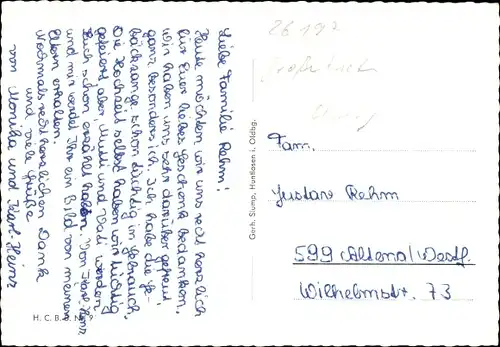 Liebe Familie Rehm!
Heute möchten wir uns recht herzlich
für Euer liebes Geschenk bedanken,
wir haben uns sehr darüber gefreut,
ganz besonders ich. Ich habe die Ge-
schon tüchtig in Gebrauch.
Die Hochzeit selbst haben wir tüchtig
gefeiert aber, Mutti und Vati werden
Euch schon erzählt haben. Von Karl-Heinz
und mir werdet Ihr ein Bild von meinen
Eltern erhalten.
Nochmals recht herzlichen Dank
und viele Grüße
von Monika und Karl-Heinz
H. C. B. 9
Gerh. Stump, Huntlosen i. Oldbg.
26 192
Fam.
Gustav Rehm
599 Altena/Westf.
Wilhelmstr. 73